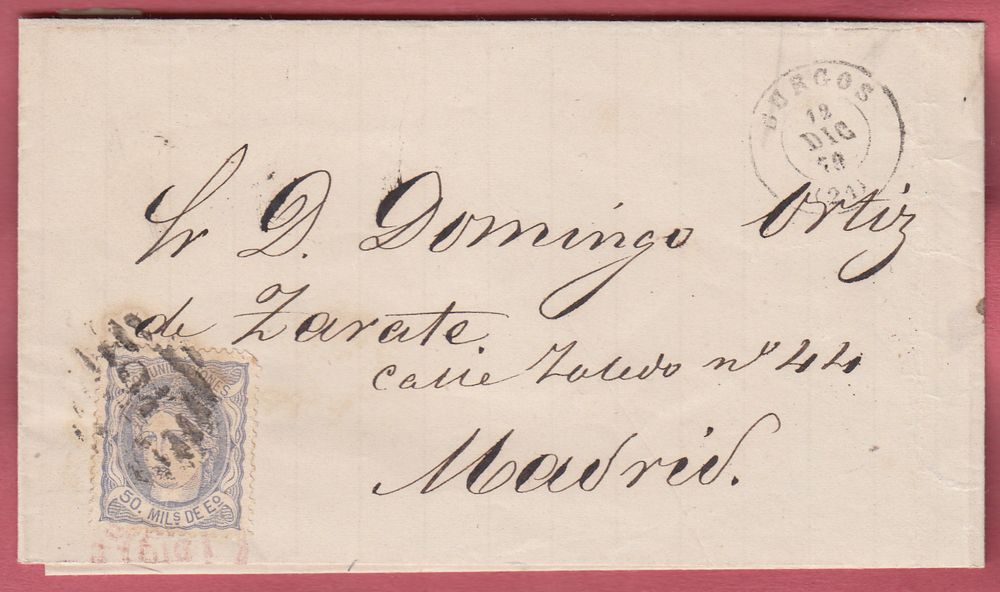 BURGOS
12
DIC
70
(21)
Sr D. Domingo Ortiz
de Zarate
calle Toledo nº 44
Madrid.
COMUNICACIONES
50. MILS DE Eº